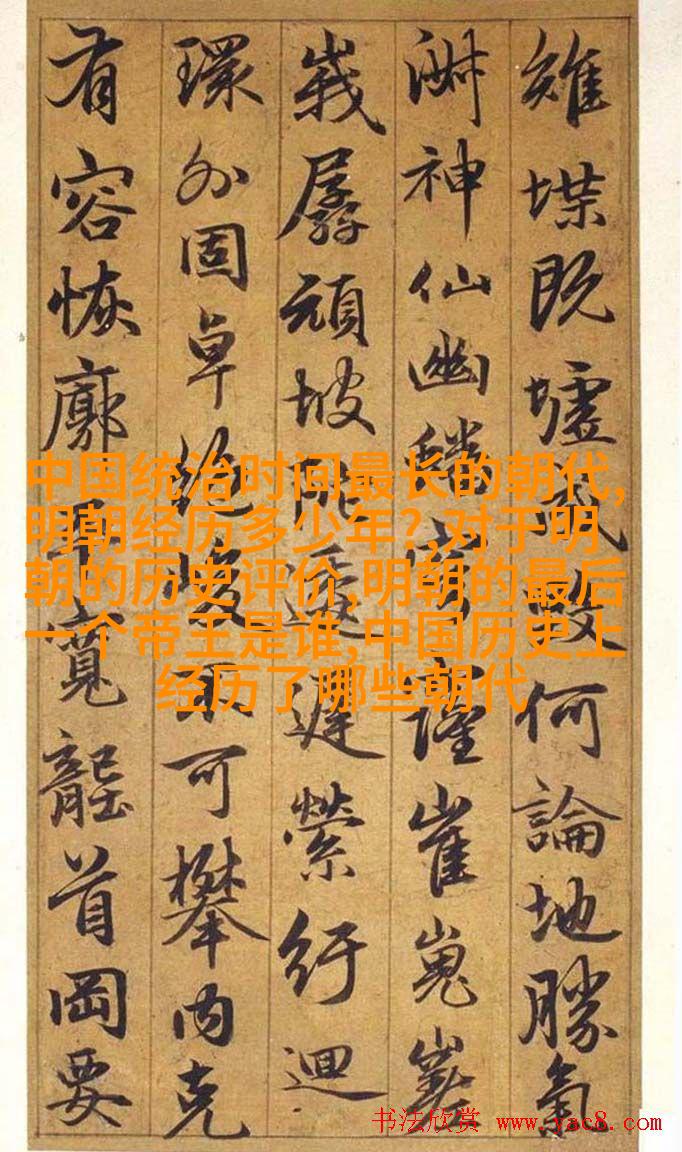 雉堞既墟何論地勝氣
神仙幽崔嵬
峩孱頑坡邐縈行迴
環外固卓絶峻不可攀内克
有容恢廓平寬首岡要
中国统治时间最长的朝代,
明朝经历多少年?,对于明
朝的历史评价,明朝的最后
一个帝王是谁,中国历史上
经历了哪些朝代
书法欣赏 www.yac8.com